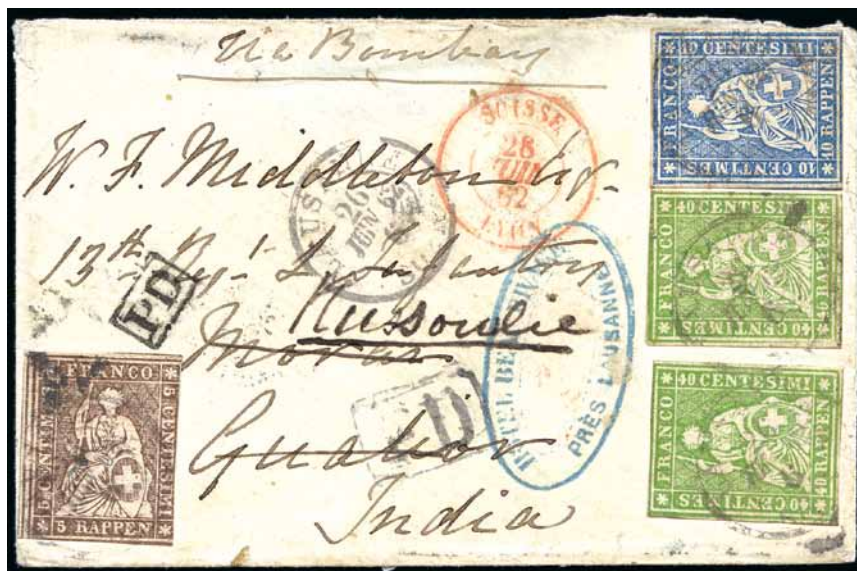 Via Bombay
W. F. Middleton Esq.
13th Regt L. Infantry
Mussoulie
Morar
Gwalior
India
SUISSE
28
JUIN
62
LYON
LAUSANNE
26
JUIN 62
HOTEL BEAU RIVAGE
PRÈS LAUSANNE
PD
PD
10 CENTESIMI
FRANCO
10 RAPPEN
10 CENTIMES
40 CENTESIMI
FRANCO
40 RAPPEN
40 CENTIMES
40 CENTESIMI
FRANCO
40 RAPPEN
40 CENTIMES
FRANCO
5 CENTIMES
5 CENTESIMI
5 RAPPEN